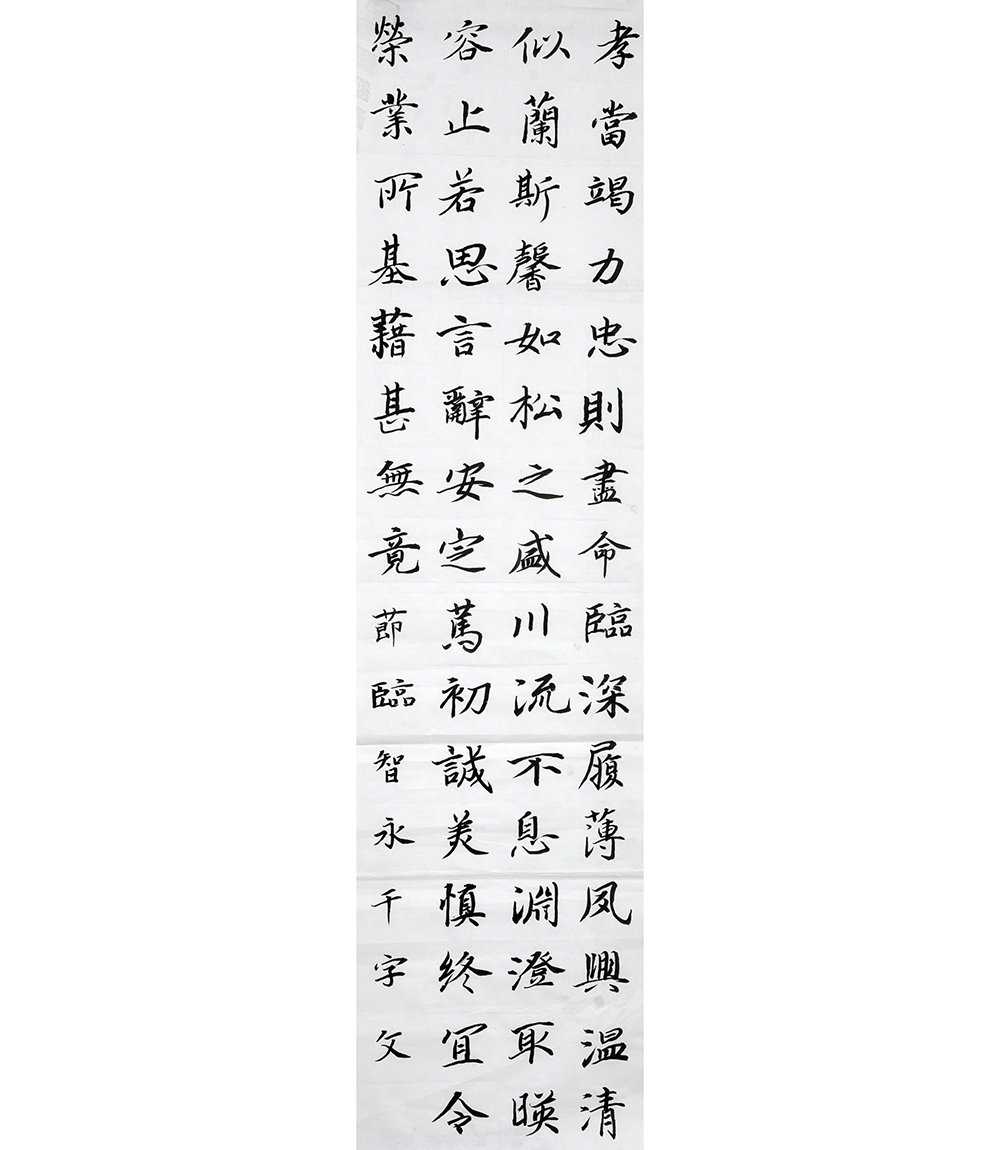 孝當竭力忠則盡命臨深履薄夙興温清
似蘭斯馨如松之盛川流不息淵澄取暎
容止若思言辭安定篤初誠美慎終宜令
榮業所基藉甚無竟節臨智永千字文